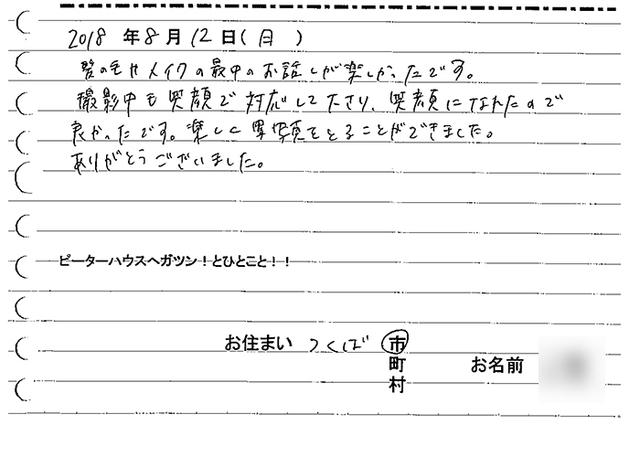 2018 年 8 月 12 日(日)
髪の毛やメイクの最中のお話しが楽しかったです。
撮影中も笑顔で対応して下さり、笑顔になれたので
良かったです。楽しく写真をとることができました。
ありがとうございました。
ピーターハウスへガツン!とひとこと!!
お住まい つくば 市
町
村
お名前